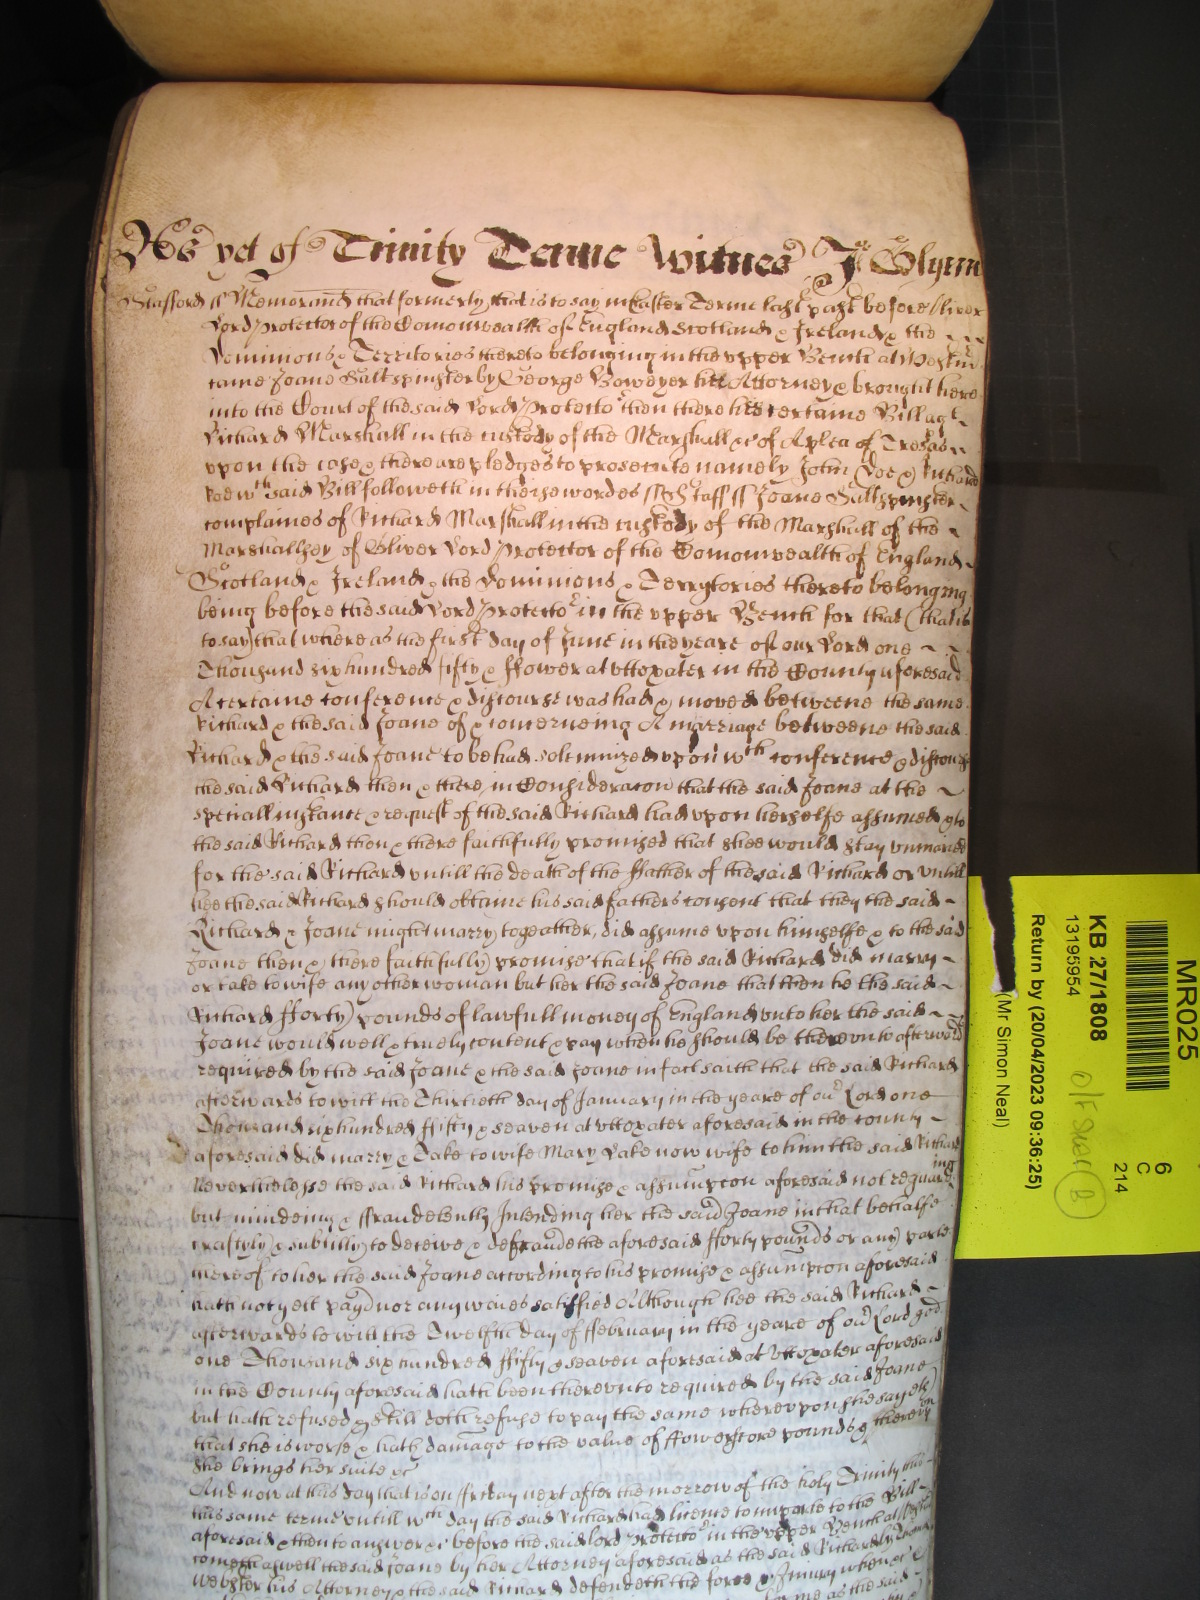 As yet of Trinity Terme Witnes J Glynn
Stafford ss Memorand that formerly that is to say in Easter Terme last past before Oliver
Lord Protector of the Comonwealth of England Scotland & Ireland & the
Dominions & Territories thereto belonging in the upper Bench at Westm
came Joane Salt spinster by George Boweyer her Attorney & brought here
into the Court of the said Lord Protector then there her certaine Bill agt
Richard Marshall in the custody of the Marshall &c of A plea of Trespas
upon the case & there are pledges to prosecute namely John Doe & Richard
Roe wch said Bill followeth in theise wordes ss Staff ss Joane Salt spinster
complaines of Richard Marshall in the custody of the Marshall of the
Marshallsey of Oliver Lord Protector of the Comonwealth of England
Scotland & Ireland & the Dominions & Terrytories thereto belonging
being before the said Lord Protector in the upper Bench for that (that is
to say) that where as the first day of June in the yeare of our Lord one
Thousand six hundred fifty & ffower at Uttoxater in the County aforesaid
A certaine conference & discourse was had & moved betweene the same
Richard & the said Joane of & concerneing A marriage betweene the said
Richard & the said Joane to be had solemnized upon wch conference & discourse
the said Richard then & there in Consideracon that the said Joane at the
speciall instance & request of the said Richard had upon herselfe assumed & to
the said Richard then & there faithfully promised that shee would stay unmaried
for the said Richard untill the death of the ffather of the said Richard or untill
hee the said Richard should obtaine his said fathers consent that they the said
Richard & Joane might marry togeather, did assume upon himselfe & to the said
Joane then & there faithfully promise that if the said Richard did marry
or take to wife any other woman but her the said Joane that then he the said
Richard fforty pounds of lawfull money of England unto her the said
Joane would well & truely content & pay when he should be thereunto afterward
required by the said Joane & the said Joane in fact saith that the said Richard
afterwards to witt the Thirtieth day of January in the yeare of our Lord one
Thousand six hundred ffifty & seaven at Uttoxater aforesaid in the county
aforesaid did marry & Take to wife Mary Lake now wife to him the said Richard
Neverthelesse the said Richard his promise & assumpcon aforesaid not reguarding
but mindeing & ffraudelently Intending her the said Joane in that behalfe
craftyly & subtilly to deceive & defraude the aforesaid fforty pounds or any parte
thereof to her the said Joane according to his promise & assumpcon aforesaid
hath not yett payd nor any waies satisfied Although hee the said Richard
afterwards to witt the Twelfth day of ffebruary in the yeare of our Lord god
one Thousand six hundred ffifty & seaven aforesaid at Uttoxater aforesaid
in the County aforesaid hath been thereunto required by the said Joane
but hath refused & still doth refuse to pay the same whereupon she sayeth
that she is worse & hath damage to the value of ffowerscore pounds & thereupon
she brings her suite &c
And now at this day that is on ffriday next after the morrow of the holy Trinity
this same terme untill wch day the said Richard had licence to imparle to the Bill
aforesaid & then to answer &c before the said lord Protector in the upper Bench at
cometh aswell the said Joane by her Attorney aforesaid as the said Richard by
Webster his Attorney & the said Richard defendeth the force & Jniury when &c
MR025
6
C
214
KB 27/1808
13195954
Return by (20/04/2023 09:36:25)
(Mr Simon Neal)